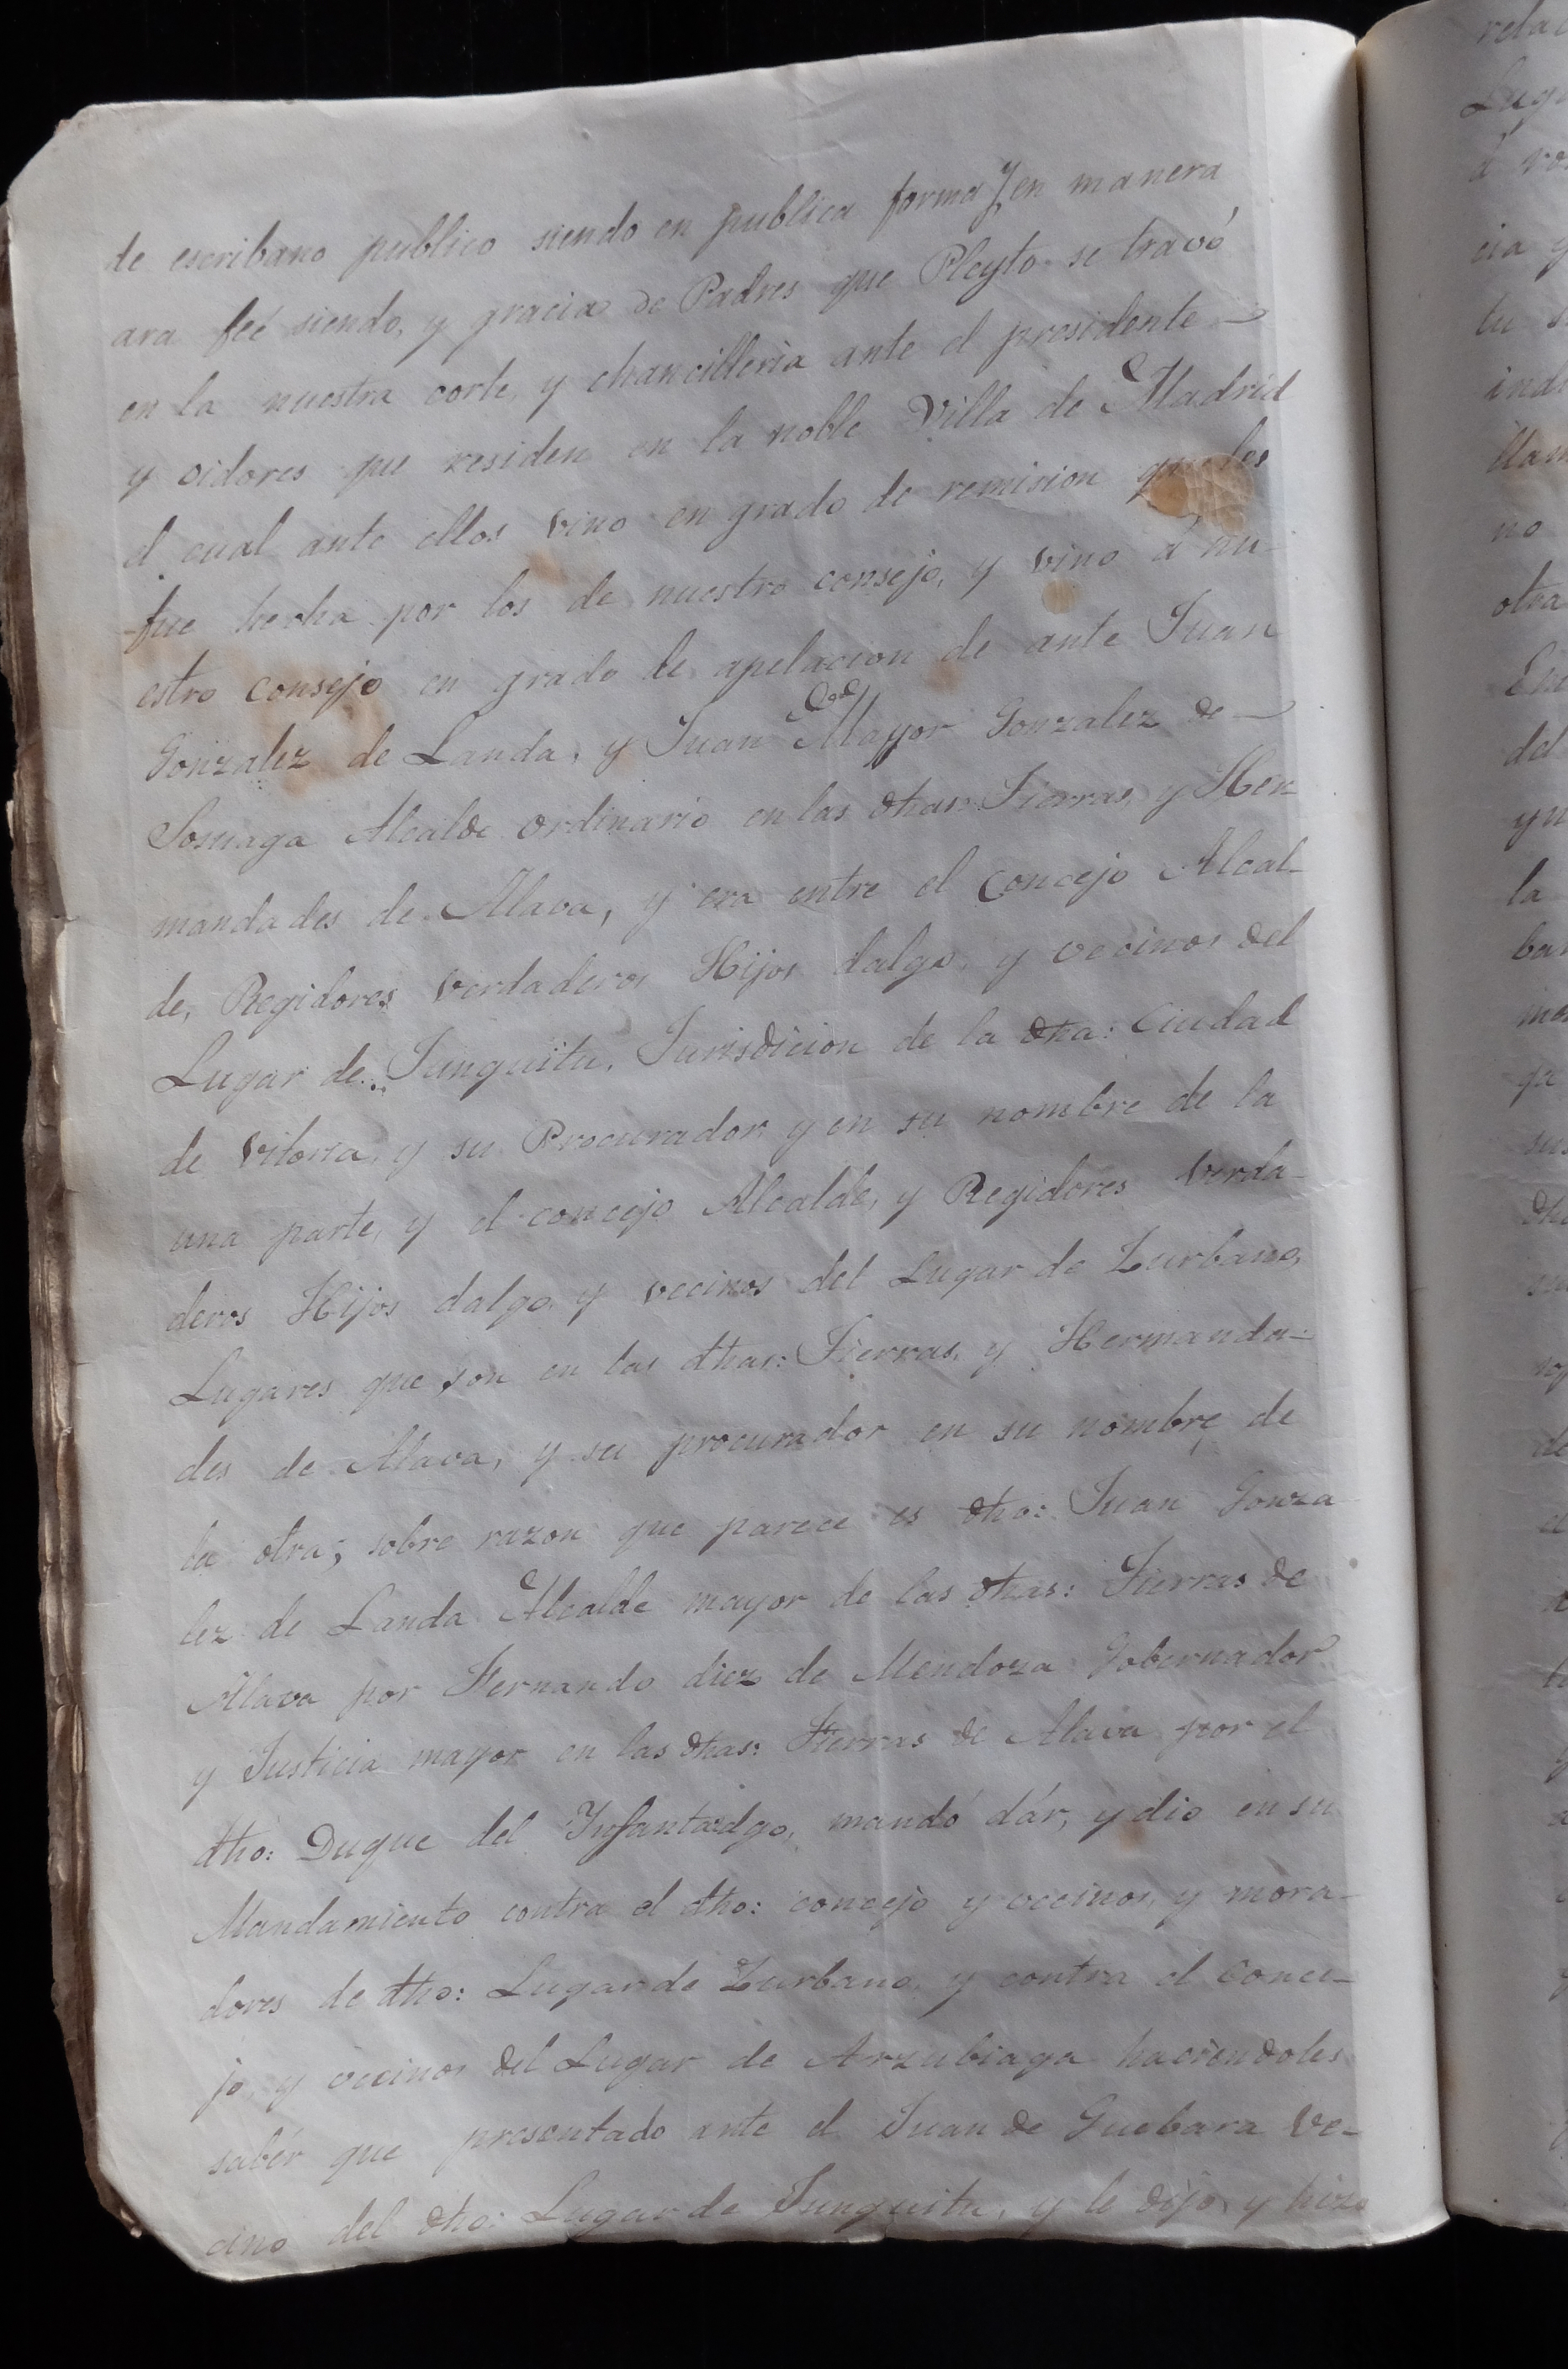 de escribano publico siendo en publica forma y en manera
ara feé siendo, y gracia de Padres que Pleyto se travó
en la nuestra corte, y chancilleria ante el presidente
y oidores que residen en la noble Villa de Madrid
el cual ante ellos vino en grado de remision que les
fue hecha por los de nuestro consejo, y vino á nu-
estro consejo en grado de apelacion de ante Juan
Gonzalez de Landa, y Juan Mayor Gonzalez de
Alcalde ordinario en las dhas: Tierras, y Her-
mandades de Alava, y era entre el Concejo Alcal-
de, Regidores verdaderos Hijos dalgo, y vecinos del
Lugar de Junguitu, Jurisdicion de la dha: Ciudad
de Vitoria, y su Procurador y en su nombre de la
una parte, y el concejo Alcalde, y Regidores verda-
deros Hijos dalgo y vecinos del Lugar de Zurbano,
Lugares que son en las dhas: Tierras, y Hermanda-
des de Alava, y su procurador en su nombre de
la otra; sobre razon que parece es dho: Juan Gonza
lez de Landa Alcalde mayor de las dhas: Tierras de
Alava por Fernando diez de Mendoza Gobernador
y Justicia mayor en las dhas: Tierras de Alava por el
dho: Duque del Ynfantadgo, mandó dár, y dio en su
Mandamiento contra el dho: concejo y vecinos, y mora-
dores de dho: Lugar de Zurbano, y contra el Conce-
jo, y vecinos del Lugar de Arzubiaga haciendoles
sabér que presentado ante el Juan de Guebara ve-
cino del dho: Lugar de Junguitu, y le dijo, y hizo
relac
Lug